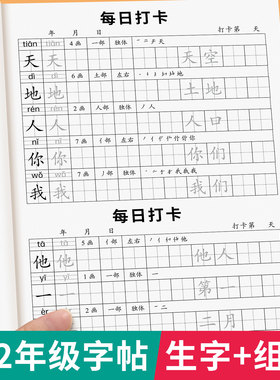 每日打卡
年 月 日 打卡第 天
tiān tiān 4画 一部 独体
天 天 天空
dì dì 6画 土部 左右
地 地 土地
rén rén 2画 人部 独体
人 人 人口
nǐ nǐ 7画 亻部 左右
你 你 你们
wǒ wǒ 7画 戈部 独体
我 我 我们
每日打卡
年 月 日 打卡第 天
tā tā 5画 亻部 左右
他 他 他人
yī yī 1画 一部 独体
一 一 第一
èr 2画 一部 独体
二月
2年级字帖 生字+组